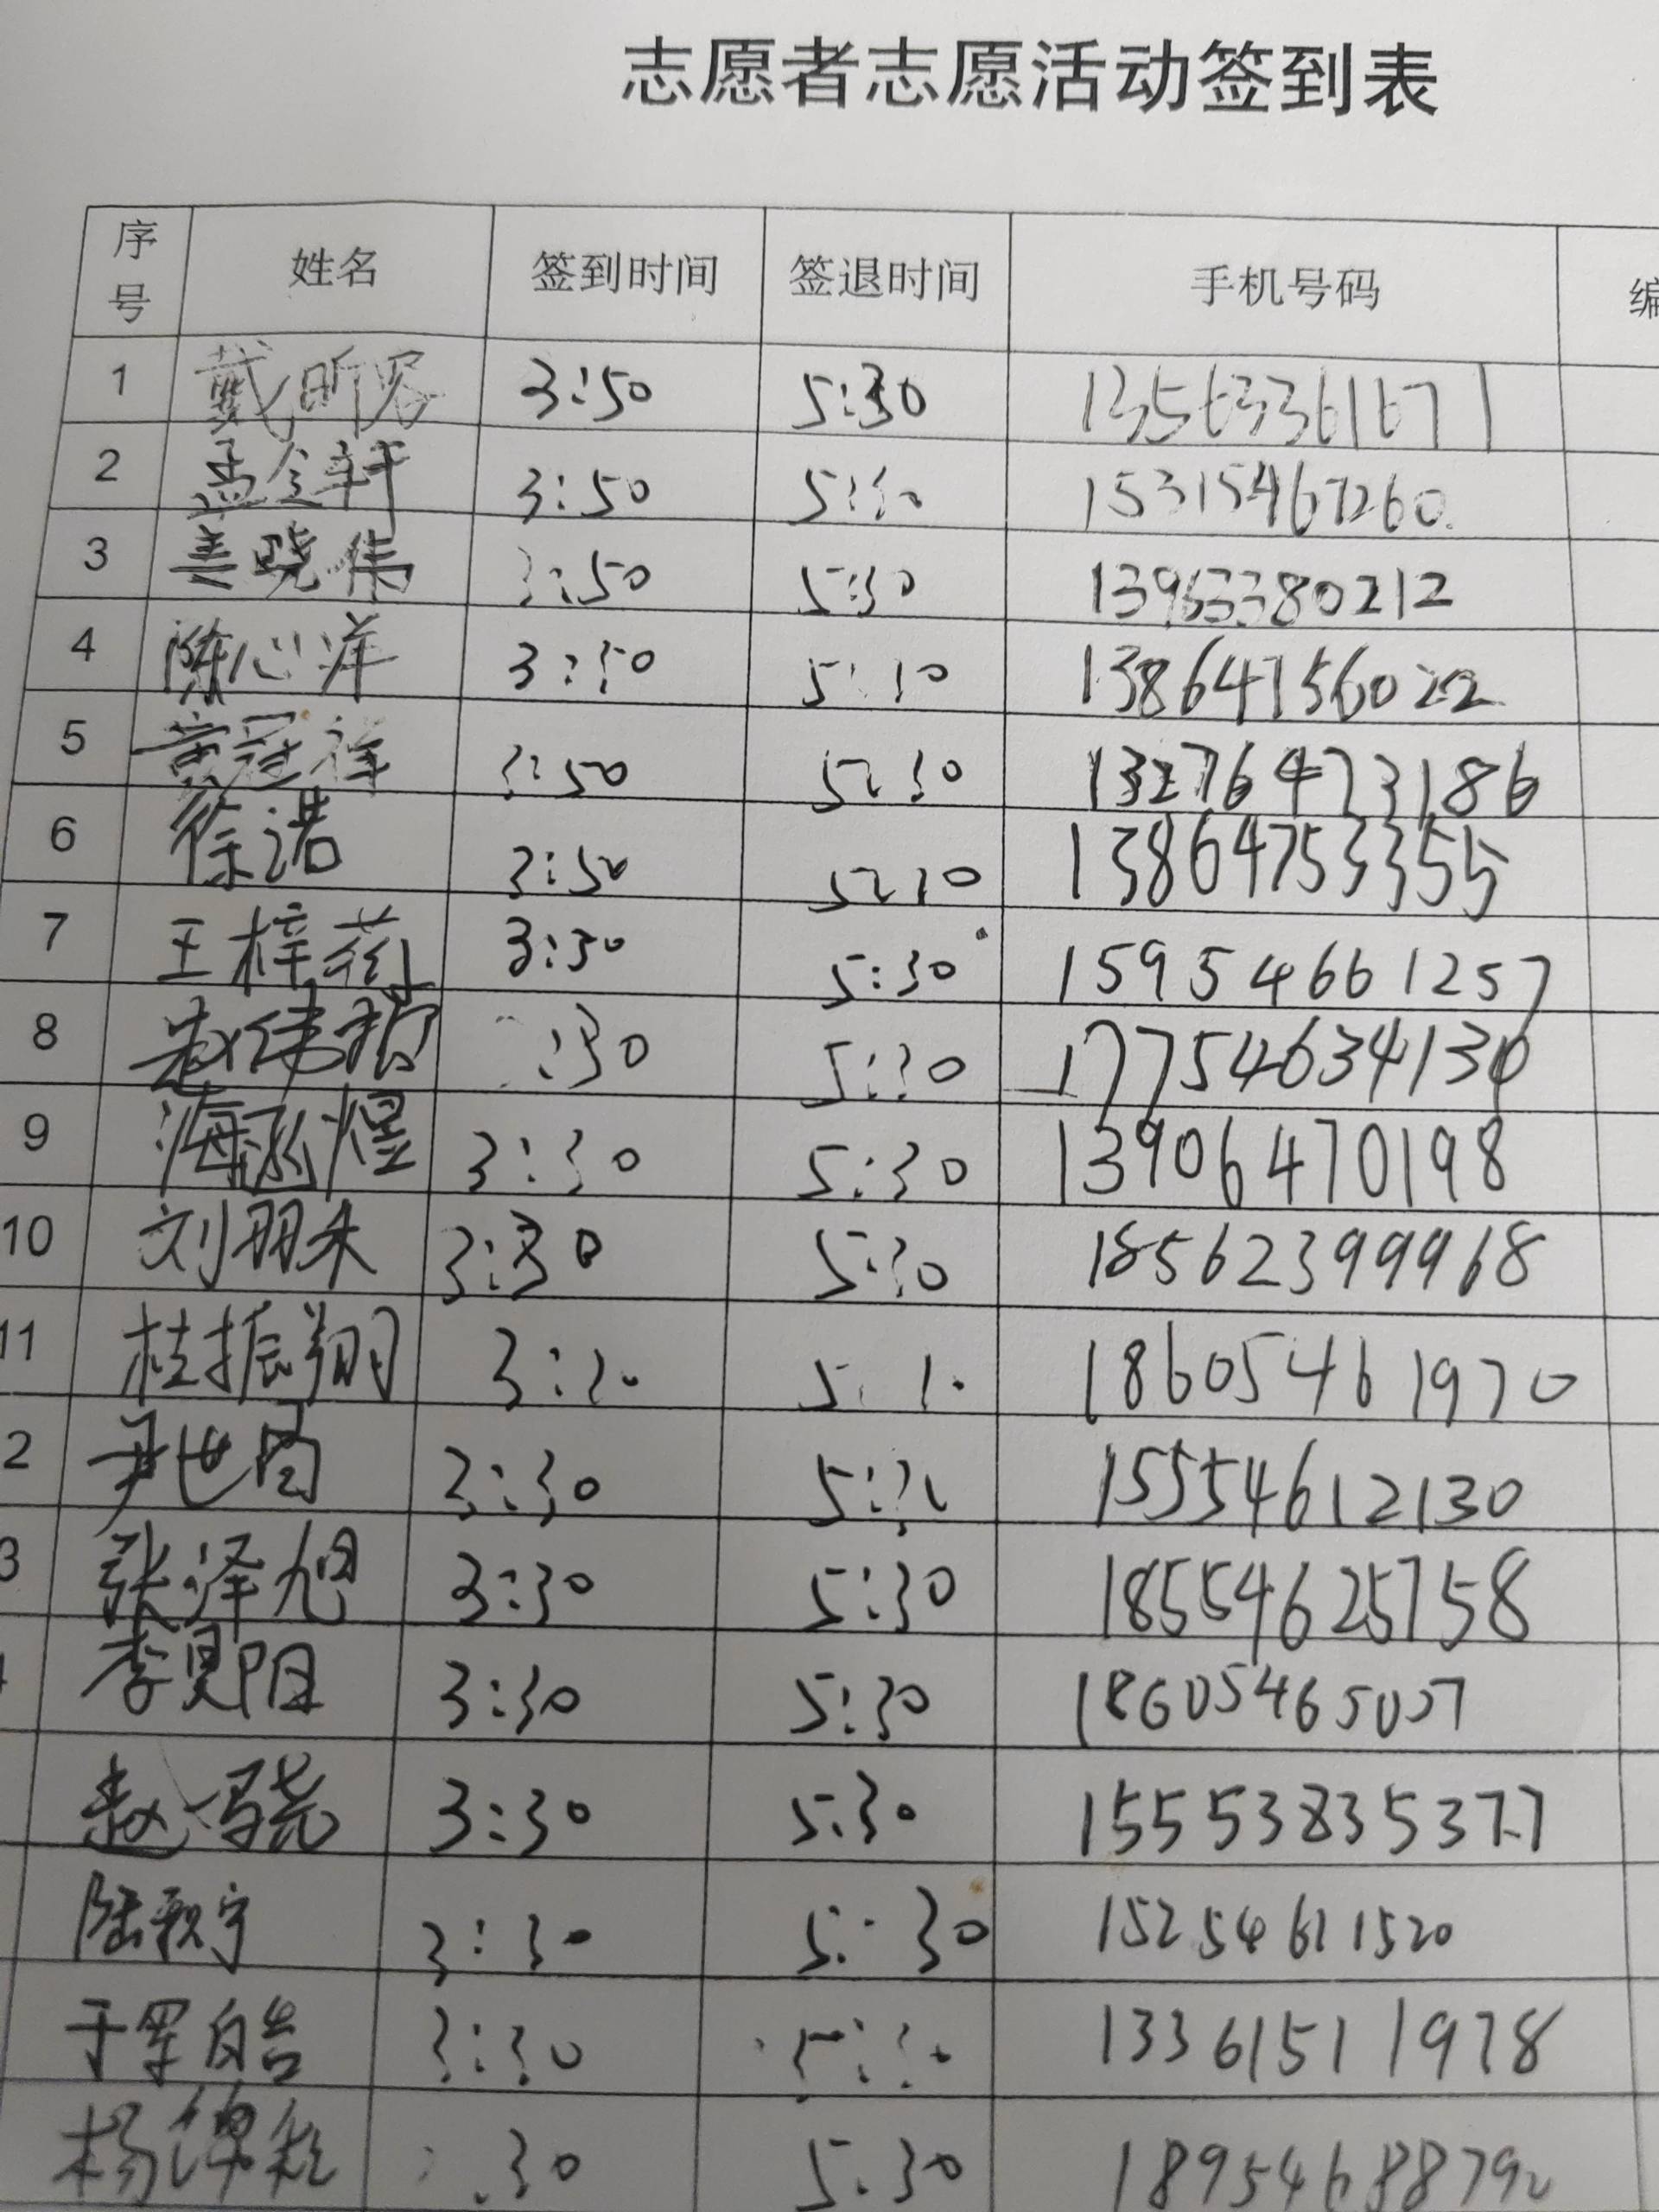 志愿者志愿活动签到表
序号 姓名 签到时间 签退时间 手机号码 编
1 戴昕 3:50 5:30 13563361671
2 孟令轩 3:50 5:30 15315467260
3 姜晓伟 3:50 5:30 13963380212
4 陈心洋 3:50 5:30 13864756022
5 黄冠祥 3:50 5:30 13276473186
6 徐诺 3:50 5:30 13864753355
7 王梓 3:30 5:30 15954661257
8 赵伟 :30 5:30 17754634130
9 海 煜 3:30 5:30 13906470198
10 刘朋禾 3:30 5:30 18562399968
11 桂振翔 3:30 5:30 18605461970
2 尹世 3:30 5:30 15554612130
3 张泽旭 3:30 5:30 18554625758
李昊阳 3:30 5:30 18605465007
赵 3:30 5:30 15553835377
陆 宇 3:30 5:30 15254611520
于 皓 3:30 5:30 13361511978
杨 :30 5:30 1895468879